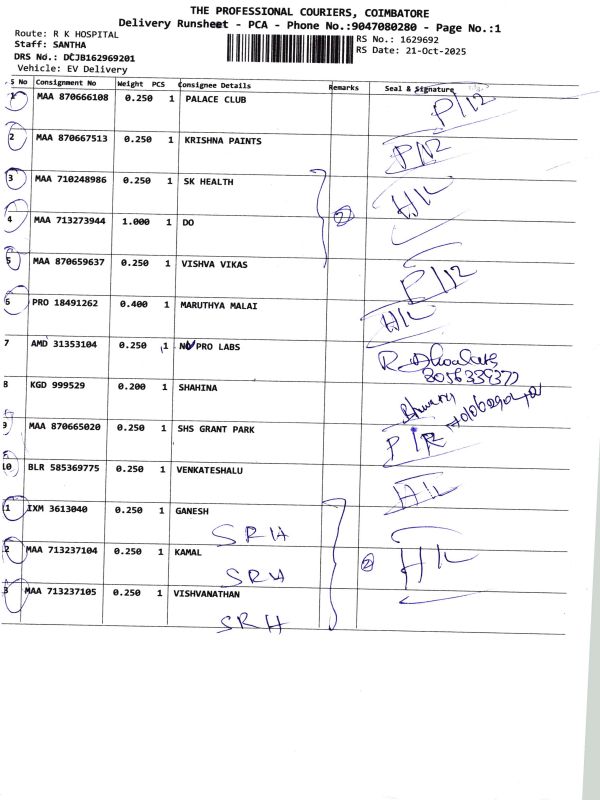 THE PROFESSIONAL COURIERS, COIMBATORE
Delivery Runsheet - PCA - Phone No.:9047080280 - Page No.:1
Route: R K HOSPITAL
Staff: SANTHA
DRS No.: DCJB162969201
Vehicle: EV Delivery
RS No.: 1629692
RS Date: 21-Oct-2025
S No Consignment No Weight PCS Consignee Details Remarks Seal & Signature
1 MAA 870666108 0.250 1 PALACE CLUB P/12
2 MAA 870667513 0.250 1 KRISHNA PAINTS P/12
3 MAA 710248986 0.250 1 SK HEALTH H/L
4 MAA 713273944 1.000 1 DO 2
5 MAA 870659637 0.250 1 VISHVA VIKAS P/12
6 PRO 18491262 0.400 1 MARUTHYA MALAI H/L
7 AMD 31353104 0.250 1 NV PRO LABS
8 KGD 999529 0.200 1 SHAHINA
9 MAA 870665020 0.250 1 SHS GRANT PARK
10 BLR 585369775 0.250 1 VENKATESHALU H/L
1 IXM 3613040 0.250 1 GANESH
SRH
2 MAA 713237104 0.250 1 KAMAL 2 H/L
SRH
3 MAA 713237105 0.250 1 VISHVANATHAN
SRH